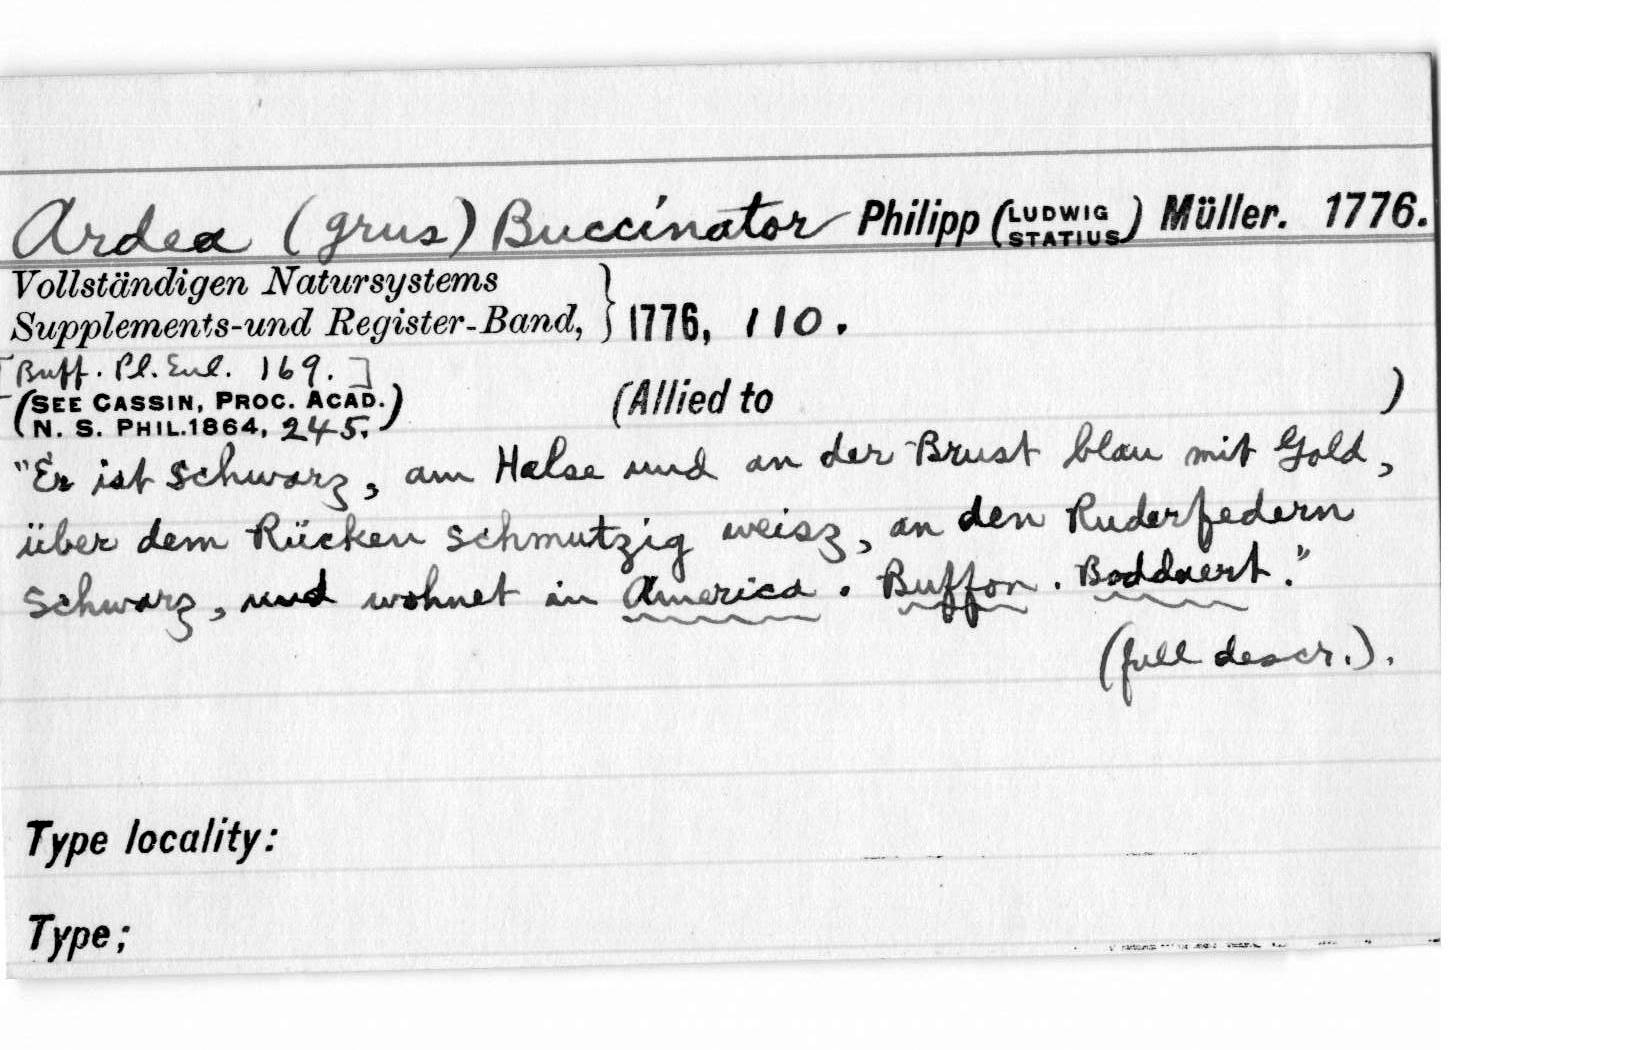 Ardea (grus) Buccinator Philipp (LUDWIG STATIUS) Müller. 1776.
Vollständigen Natursystems
Supplements-und Register-Band, } 1776, 110.
[Buff. Pl. Enl. 169.]
(SEE CASSIN, PROC. ACAD. N. S. PHIL. 1864, 245.) (Allied to )
"Er ist schwarz, am Halse und an der Brust blau mit Gold,
über dem Rücken schmutzig weisz, an den Ruderfedern
schwarz, und wohnet in America. Buffon. Boddaert."
(full descr.).
Type locality:
Type;